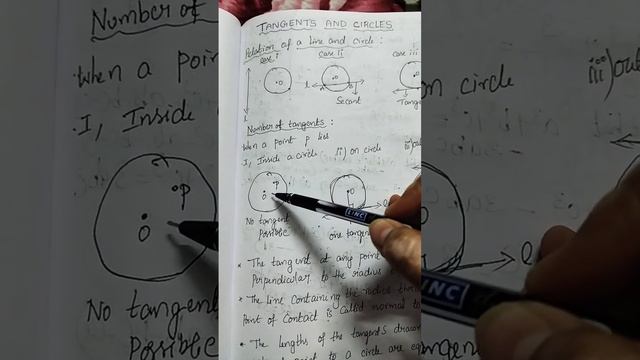 TANGENTS AND CIRCLES
Relation of a line and circle :
case i
case ii
case iii
O
O
O
l
Secant
Tangent
Number of tangents :
When a point p lies
I, Inside a circle
ii) on circle
iii) out
P
O
O
No tangent
Possible
one tangent
* The tangent at any point
Perpendicular to the radius
* The line containing the radius
Point of Contact is called normal to
* The lengths of the tangents drawn
to a circle are
LINC
Number of
When a poin
I, Inside
P
O
No tangent
Possible
LINC
Q